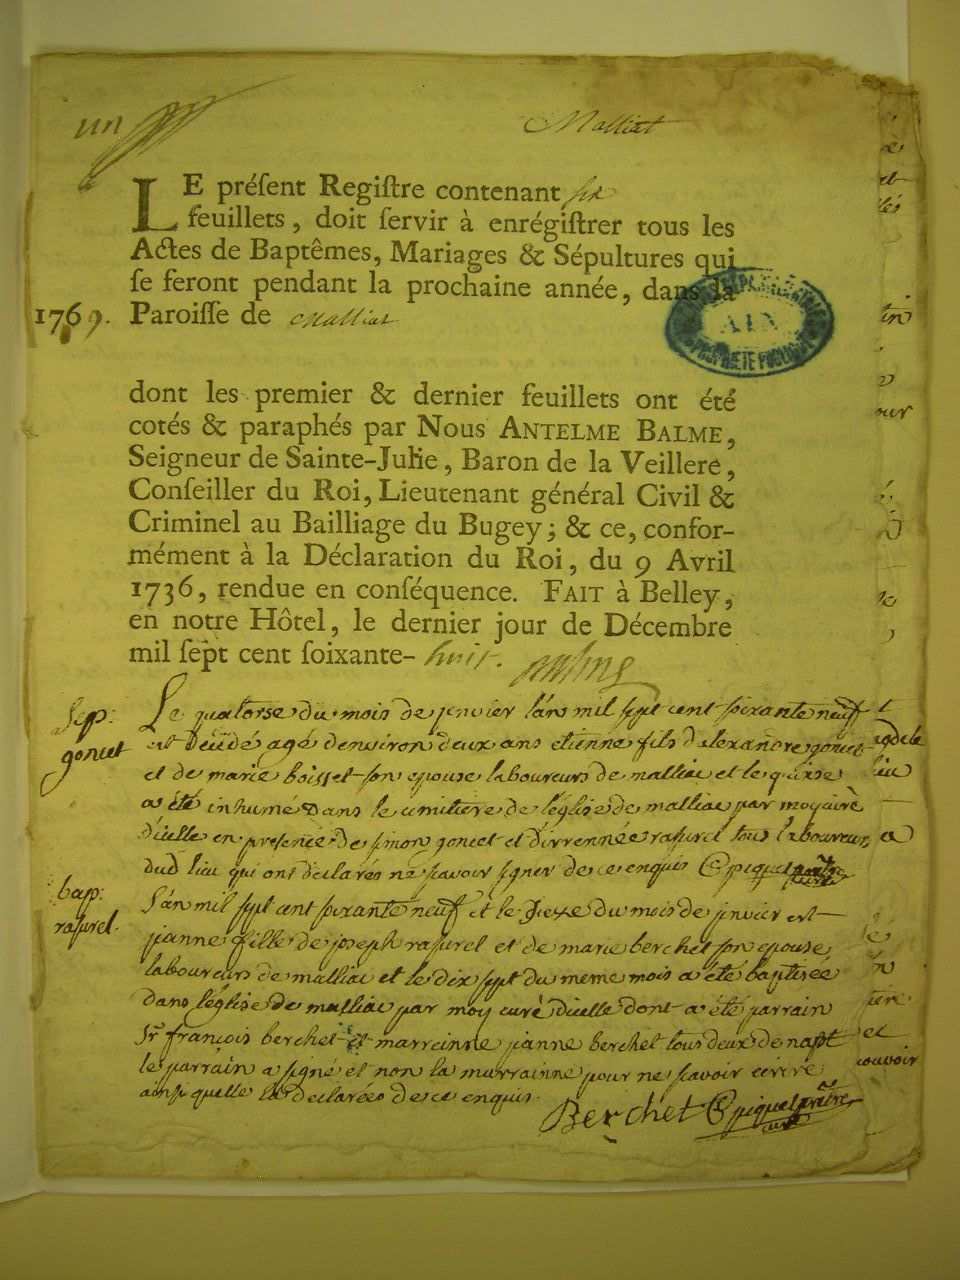 un
Malliat
LE préſent Regiſtre contenant six
feuillets, doit ſervir à enrégiſtrer tous les
Actes de Baptêmes, Mariages & Sépultures qui
ſe feront pendant la prochaine année, dans la
1769. Paroiſſe de Malliat
AIN
PROPRIETE PUBLIQUE
dont les premier & dernier feuillets ont été
cotés & paraphés par Nous ANTELME BALME,
Seigneur de Sainte-Julie, Baron de la Veillere,
Conſeiller du Roi, Lieutenant général Civil &
Criminel au Bailliage du Bugey; & ce, confor-
mément à la Déclaration du Roi, du 9 Avril
1736, rendue en conſéquence. FAIT à Belley,
en notre Hôtel, le dernier jour de Décembre
mil ſept cent ſoixante- huit.
Sep:
goncet
Le quatorse du mois de jenvier l'an mil sept cent soixante neuf
est décédé agé denviron deux ans etienne fils d'alexandre goncet
et de marie boisset son epouse laboureurs de malliac et le quinse
a été inhumé dans le cimitiere de l'église de malliac par moy curé
d'icelle en présence de simon goncet et d' rasurel tous laboureurs
dud lieu qui ont déclarés ne scavoir signer de ce enquis piquet prêtre
bap:
rasurel.
L'an mil sept cent soixante neuf et le du mois de jenvier est
janne fille de joseph rasurel et de marie berchet son epouse
laboureurs de malliac et le dix sept du meme mois a été baptisée
dans l'église de malliac par moy curé d'icelle dont a été parrain
Sr françois berchet et marrainne janne berchet tous deux de napt
le parrain a signé et non la marrainne pour ne scavoir ecrire
ainsi quelle la declarée de ce enquis.
Berchet piquet prêtre
curé